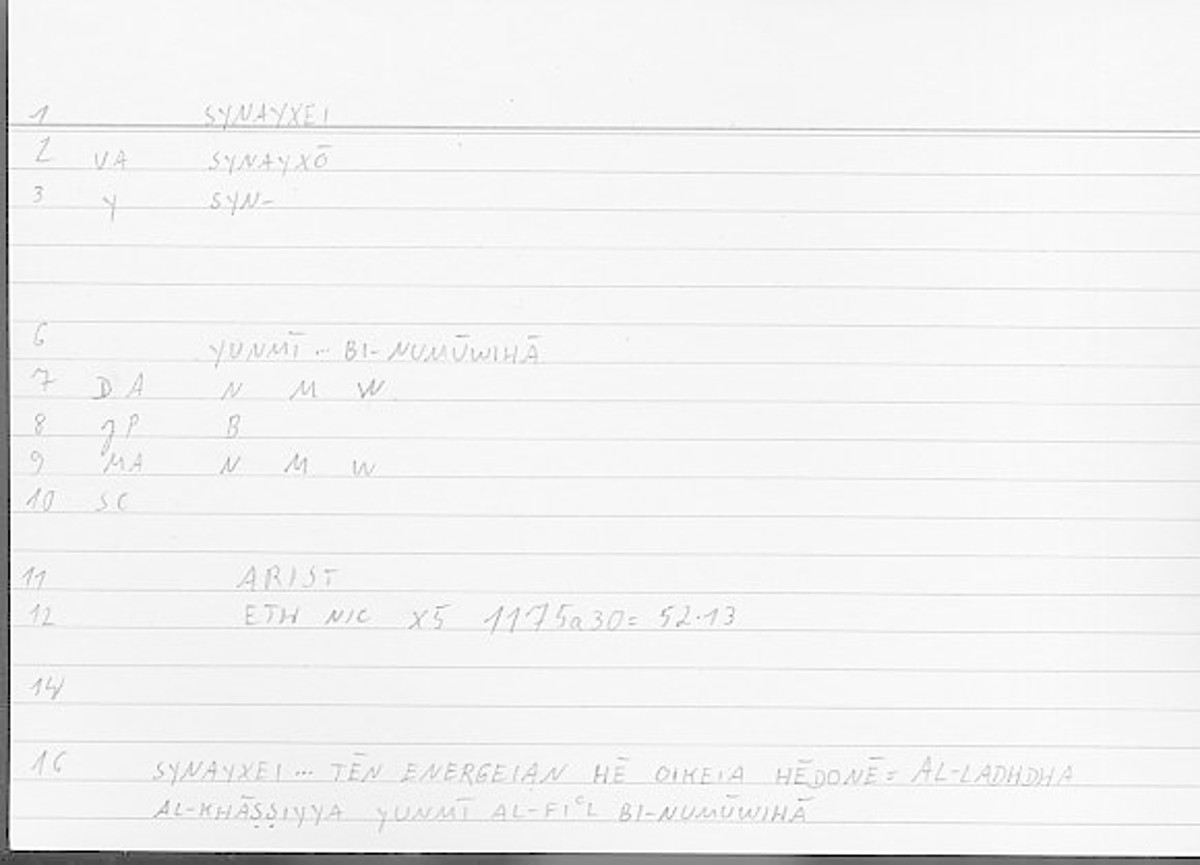 1 SYNAYXEI
2 VA SYNAYXŌ
3 Y SYN-
6 YUNMĪ ... BI-NUMŪWIHĀ
7 D A N M W
8 JP B
9 MA N M W
10 SC
11 ARIST
12 ETH NIC X5 1175a30= 52.13
14
16 SYNAYXEI ... TĒN ENERGEIAN HĒ OIKEIA HĒDONĒ= AL-LADHDHA
AL-KHĀṢṢIYYA YUNMĪ AL-FIᶜL BI-NUMŪWIHĀ